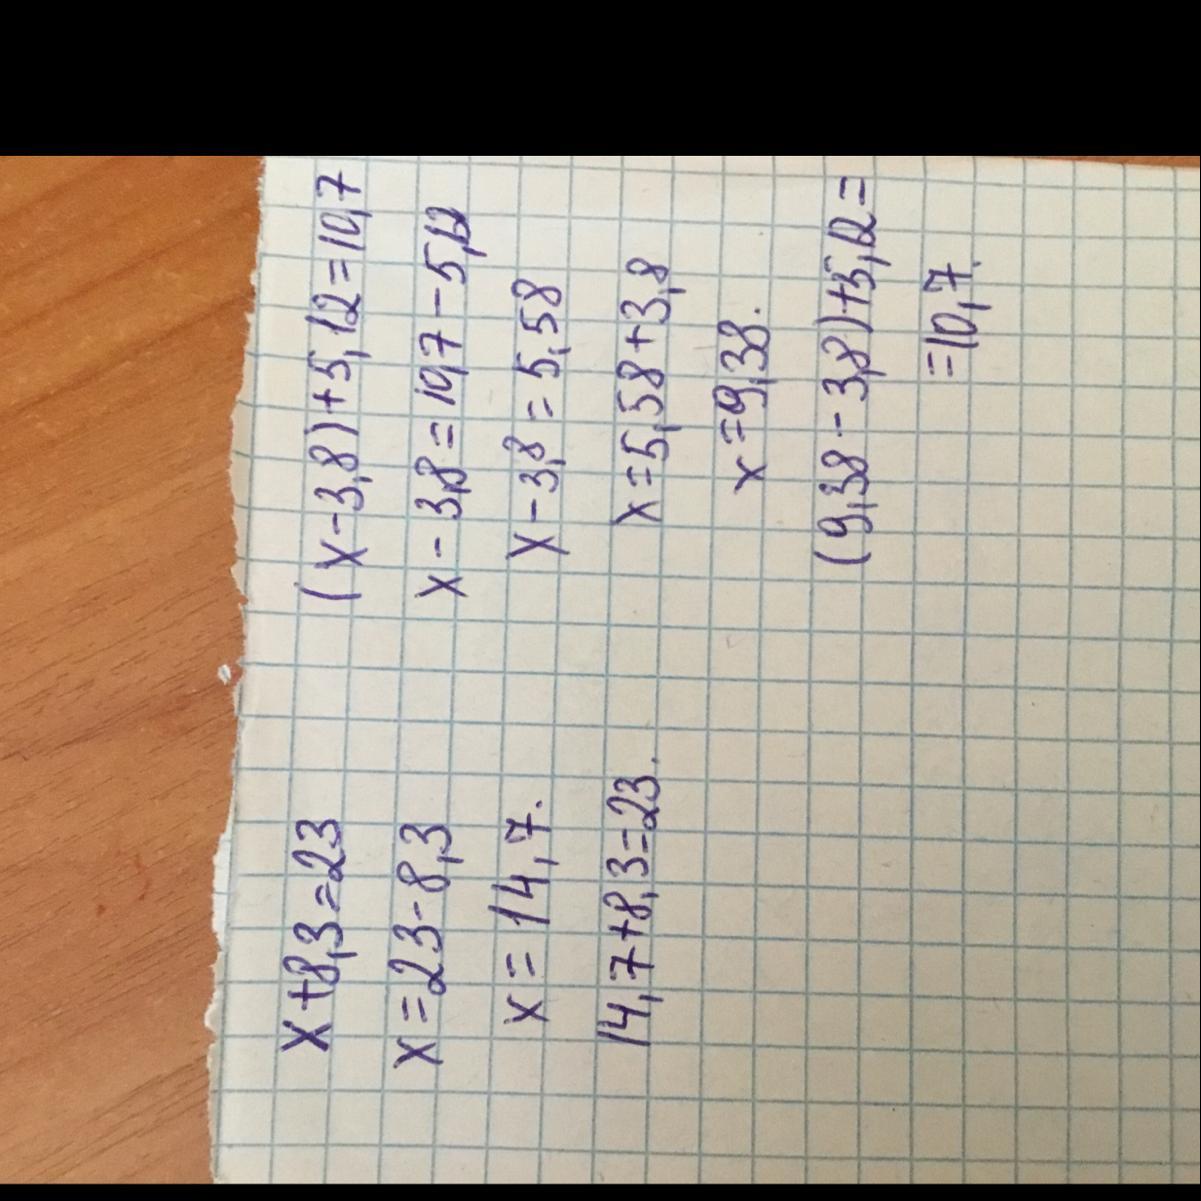 x+8,3=23
x=23-8,3
x=14,7.
14,7+8,3=23.
(x-3,8)+5,12=10,7
x-3,8=10,7-5,12
x-3,8=5,58
x=5,58+3,8
x=9,38.
(9,38-3,8)+5,12=
=10,7.